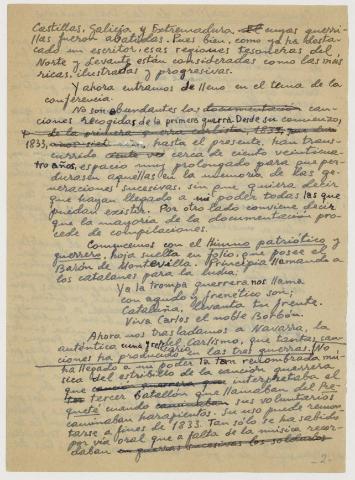 Castillas, Galicia y Extremadura, cuyas guerri-
llas fueron abatidas. Pues bien, como ya ha desta-
cado un escritor, esas regiones tesoneras del
Norte y Levante están consideradas como las más
ricas, ilustradas y progresivas.
Y ahora entramos de lleno en el tema de la
conferencia.
No son abundantes las documentación can-
ciones recogidas de la primera guerra. Desde su comienzo,
de la primera guerra carlista, 1833, que
1833, hasta el presente, han trans-
currido cerca de ciento veinticua-
tro años, espacio muy prolongado para que per-
durasen aquellas en la memoria de las ge-
neraciones sucesivas, sin que quiera decir
que hayan llegado a mi poder todas las que
puedan existir. Por otro lado conviene decir
que la mayoría de la documentación pro-
cede de compilaciones.
Comencemos con el Himno patriótico y
guerrero, hoja suelta en folio, que posee el
Barón de Montevilla. Principia llamando a
los catalanes para la lucha:
Ya la trompa guerrera nos llama
con agudo y frenético son;
Cataluña, levanta tu frente.
Viva Carlos el noble Borbón.
Ahora nos trasladamos a Navarra, la
auténtica del Carlismo, que tantas can-
ciones ha producido en las tres guerras. No
ha llegado a mi poder la tan renombrada mú-
sica del estribillo de la canción guerrera
que canción guerrera que interpretaba el
tercer Batallón que llamaban del Re-
queté cuando caminaban sus voluntarios
caminaban harapientos. Su uso puede remon-
tarse a fines de 1833. Tan sólo se ha sabido
por vía oral que a falta de la música recor-
daban en guerras sucesivas los soldados
-2-